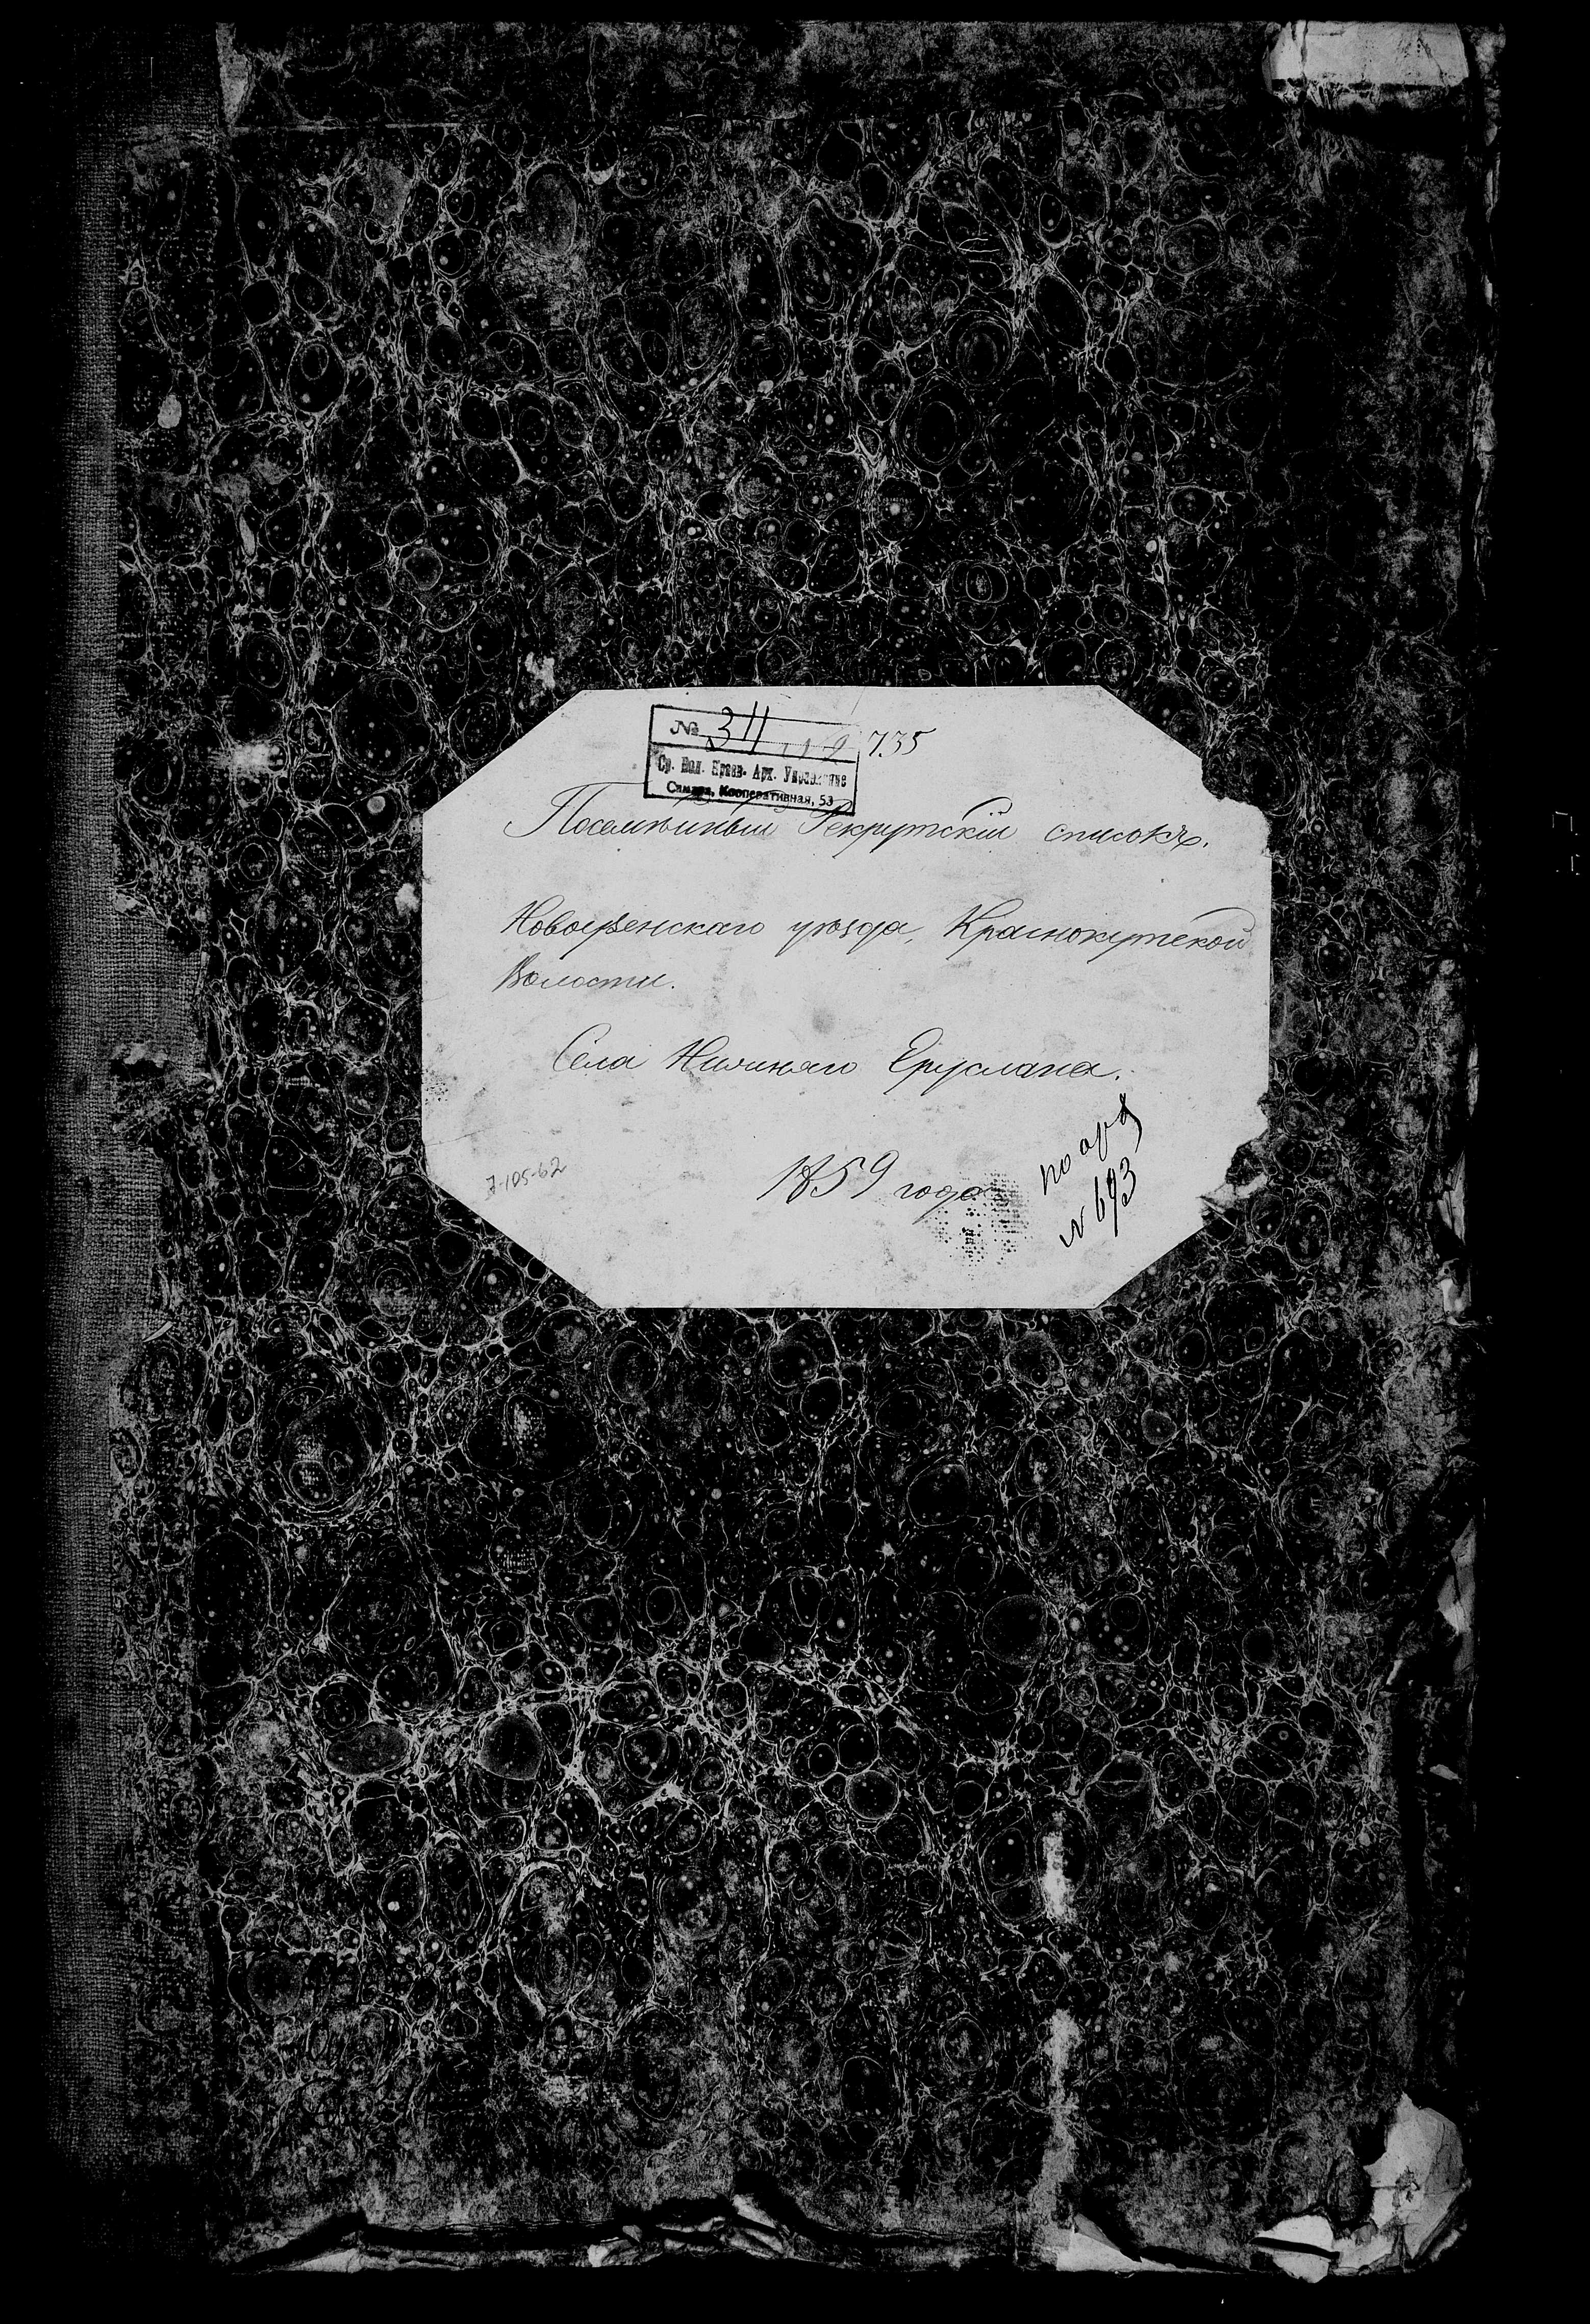 № 34 735
Ср. Вол. Краев. Арх. Управление
Самара, Кооперативная, 53
Посемѣйный Рекрутскій списокъ.
Новоузенскаго уѣзда, Краснокутской
Волости.
Села Нижняго Еруслана.
1859 года
7-105-62
по арх
№ 693